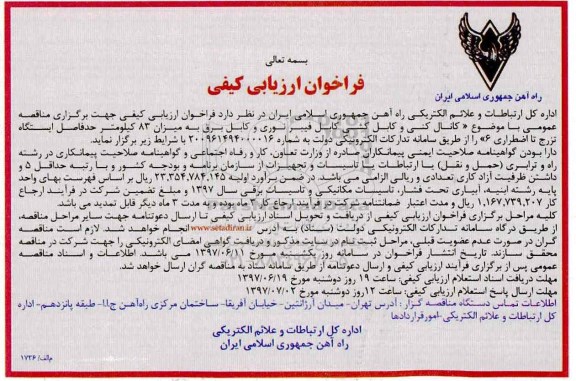 بسمه تعالی
فراخوان ارزیابی کیفی
راه آهن جمهوری اسلامی ایران
اداره کل ارتباطات و علائم الکتریکی راه آهن جمهوری اسلامی ایران در نظر دارد فراخوان ارزیابی کیفی جهت برگزاری مناقصه
عمومی با موضوع « کانال کنی و کابل کشی کابل فیبر نوری و کابل برق به میزان ۸۳ کیلومتر حدفاصل ایستگاه
تزرج تا اضطراری ۴۶ » را از طریق سامانه تدارکات الکترونیکی دولت به شماره ۲۰۰۹۶۱۴۹۴۰۰۰۰۱۶ با شرایط زیر برگزار نماید.
دارا بودن گواهینامه صلاحیت ایمنی پیمانکاران صادره از وزارت تعاون، کار و رفاه اجتماعی و گواهینامه صلاحیت پیمانکاری در رشته
راه و ترابری (حمل و نقل) یا ارتباطات یا تاسیسات و تجهیزات از سازمان برنامه و بودجه کشور و با رتبه حداقل ۵ و
داشتن ظرفیت آزاد کاری تعدادی و ریالی الزامی می باشد. در ضمن برآورد اولیه ۲۳,۳۵۴,۷۸۴,۱۴۵ ریال بر اساس فهرست بهای واحد
پایه رشته ابنیه، آبیاری تحت فشار، تاسیسات مکانیکی و تاسیسات برقی سال ۱۳۹۷ و مبلغ تضمین شرکت در فرآیند ارجاع
کار ۱,۱۶۷,۷۳۹,۲۰۷ ریال و مدت اعتبار ضمانتنامه شرکت در فرآیند ارجاع کار ۳ ماه بوده و به مدت ۳ ماه دیگر قابل تمدید می باشد.
کلیه مراحل برگزاری فراخوان ارزیابی کیفی از دریافت و تحویل اسناد ارزیابی کیفی تا ارسال دعوتنامه جهت سایر مراحل مناقصه،
از طریق درگاه سامانه تدارکات الکترونیکی دولت (ستاد) به آدرس www.setadiran.ir انجام خواهد شد. لازم است مناقصه
گران در صورت عدم عضویت قبلی، مراحل ثبت نام در سایت مذکور و دریافت گواهی امضای الکترونیکی را جهت شرکت در مناقصه
محقق سازند. تاریخ انتشار فراخوان در سامانه روز یکشنبه مورخ ۱۳۹۷/۰۶/۱۱ می باشد اطلاعات و اسناد مناقصه
عمومی پس از برگزاری فرآیند ارزیابی کیفی و ارسال دعوتنامه از طریق سامانه ستاد به مناقصه گران ارسال خواهد شد.
مهلت دریافت اسناد استعلام ارزیابی کیفی: ساعت ۱۹ روز دوشنبه مورخ ۱۳۹۷/۰۶/۱۹
مهلت ارسال پاسخ استعلام ارزیابی کیفی: ساعت ۱۲روز دوشنبه مورخ ۱۳۹۷/۰۷/۰۲
اطلاعات تماس دستگاه مناقصه گزار : آدرس تهران- میدان آرژانتین - خیابان آفریقا- ساختمان مرکزی راه آهن ج.ا.ا- طبقه پانزدهم- اداره
کل ارتباطات و علائم الکتریکی -امورقراردادها
اداره کل ارتباطات و علائم الکتریکی
راه آهن جمهوری اسلامی ایران
م‌الف/ ۱۷۲۶